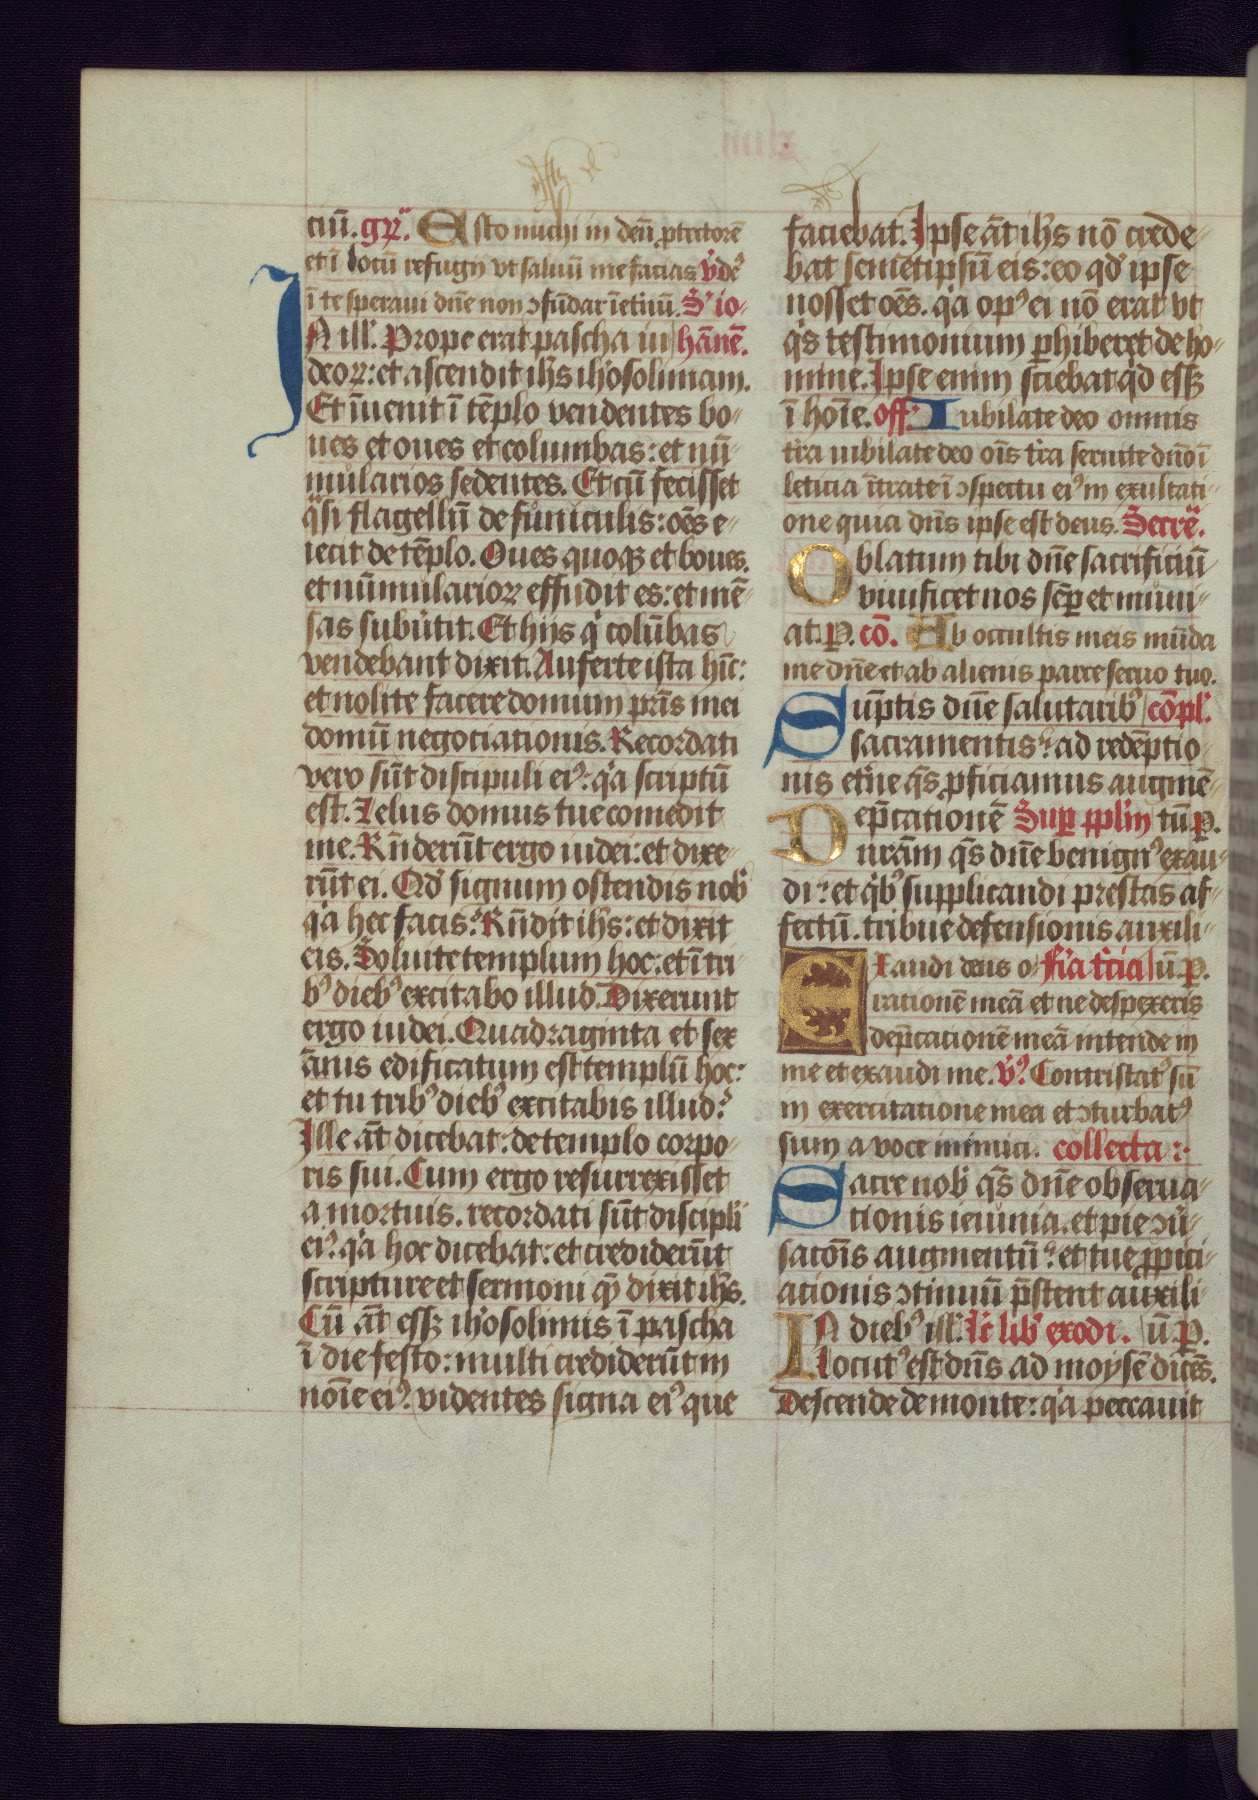 ciū. gr̄. Esto michi in deū ptectorē
et ī locū refugij vt saluū me facias v̄. de⁹
ī te speraui dn̄e non ɔfūdar ī etnū. S' io-
IN ill'. Prope erat pascha iu hānē.
deoꝝ: et ascendit ih̄s ih'osolimam.
Et īuenit ī tēplo vendentes bo-
ues et oues et columbas: et nū-
mularios sedentes. Et cū fecisset
qͣsi flagellū de funiculis: oēs e-
iecit de tēplo. Oues quoqꝫ et boues.
et nūmularioꝝ effudit es: et mē-
sas subūtit. Et hijs qͥ colūbas
vendebant dixit. Auferte ista hīc:
et nolite facere domum pr̄is mei
domū negociationis. Recordati
vero sūt discipuli ei⁹: qͥa scriptū
est. Zelus domus tue comedit
me. Rn̄derūt ergo iudei: et dixe-
rūt ei. Qd' signum ostendis nob'
qͥa hec facis? Rn̄dit ih̄s: et dixit
eis. Soluite templum hoc: et ī tri-
b⁹ dieb⁹ excitabo illud. Dixerunt
ergo iudei. Quadraginta et sex
ānis edificatum est templū hoc:
et tu trib⁹ dieb⁹ excitabis illud?
Ille āt dicebat: de templo corpo-
ris sui. Cum ergo resurrexisset
a mortuis. recordati sūt discipli
ei⁹: qͥa hoc dicebat: et crediderūt
scripture et sermoni quē dixit ih̄s.
Cū āt essꝫ ih'osolimis ī pascha
ī die festo: multi crediderūt in
noīe ei⁹: videntes signa ei⁹ que
faciebat. Ipse āt ih̄s nō crede-
bat semetipsū eis: eo qd' ipse
nosset oēs. qͥa op⁹ ei nō erat vt
qͥs testimonium ꝑhiberet de ho-
mine. Ipse enim sciebat qd essꝫ
ī hoīe. off. Iubilate deo omnis
tr̄a iubilate deo oīs tr̄a seruite dn̄o ī
leticia ītrate ī ɔspectu ei⁹ in exultati-
one quia dn̄s ipse est deus. Secrē.
Oblatum tibi dn̄e sacrificiū
viuificet nos semꝑ et muni-
at. P. cō. Ab occultis meis mūda
me dn̄e et ab alienis parce seruo tuo.
Sūptis dn̄e salutarib⁹ cōpl'.
sacramentis: ad redēptio-
nis et'ne qs̄ ꝓficiamus augmē-
Dep̄cationē Suꝑ pplm tū P.
nr̄am qs̄ dn̄e benign⁹ exau-
di: et qͥb⁹ supplicandi prestas af-
fectū. tribue defensionis auxili-
Exaudi deus o- fīa t'cia ū. P.
rationē meā et ne despexeris
dep̄cationē meā intende in
me et exaudi me. v̄⁹. Contristat⁹ sū
in exercitatione mea et ɔturbat⁹
sum a voce inimici. collecta :·
Sacre nob' qs̄ dn̄e obserua-
tionis ieiunia. et pie ɔū-
satōis augmentū: et tue ꝓpici-
ationis ɔtinuū p̄stent auxili-
IN dieb⁹ ill'. Lc̄ lib' exodi. ū. P.
locut⁹ est dn̄s ad moysē dicēs.
Descende de monte: qͥa peccauit